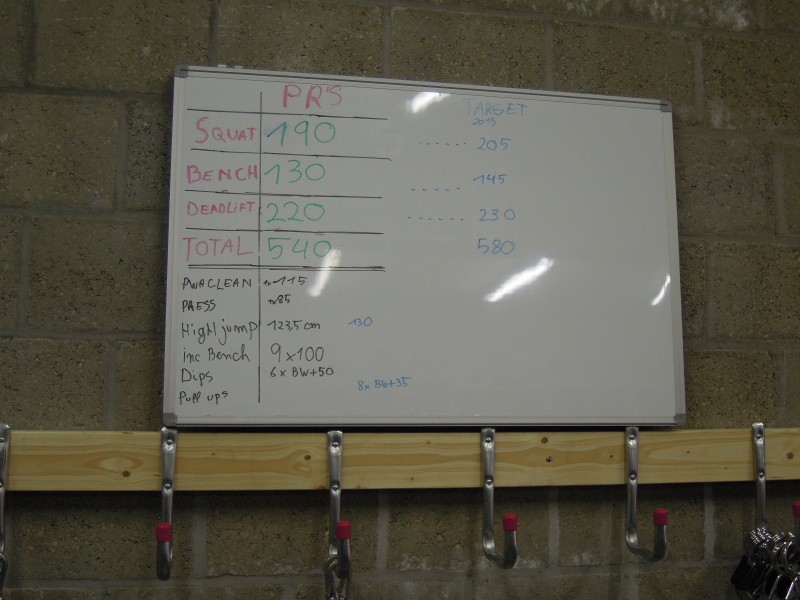 PR'S TARGET
2015
SQUAT 190 ...... 205
BENCH 130 ...... 145
DEADLIFT 220 ...... 230
TOTAL 540 580
PWRCLEAN 1x115
PRESS 1x85
High jump 123,5 cm 130
inc Bench 9x100
Dips 6x BW+50
Pull ups 8x BW+35